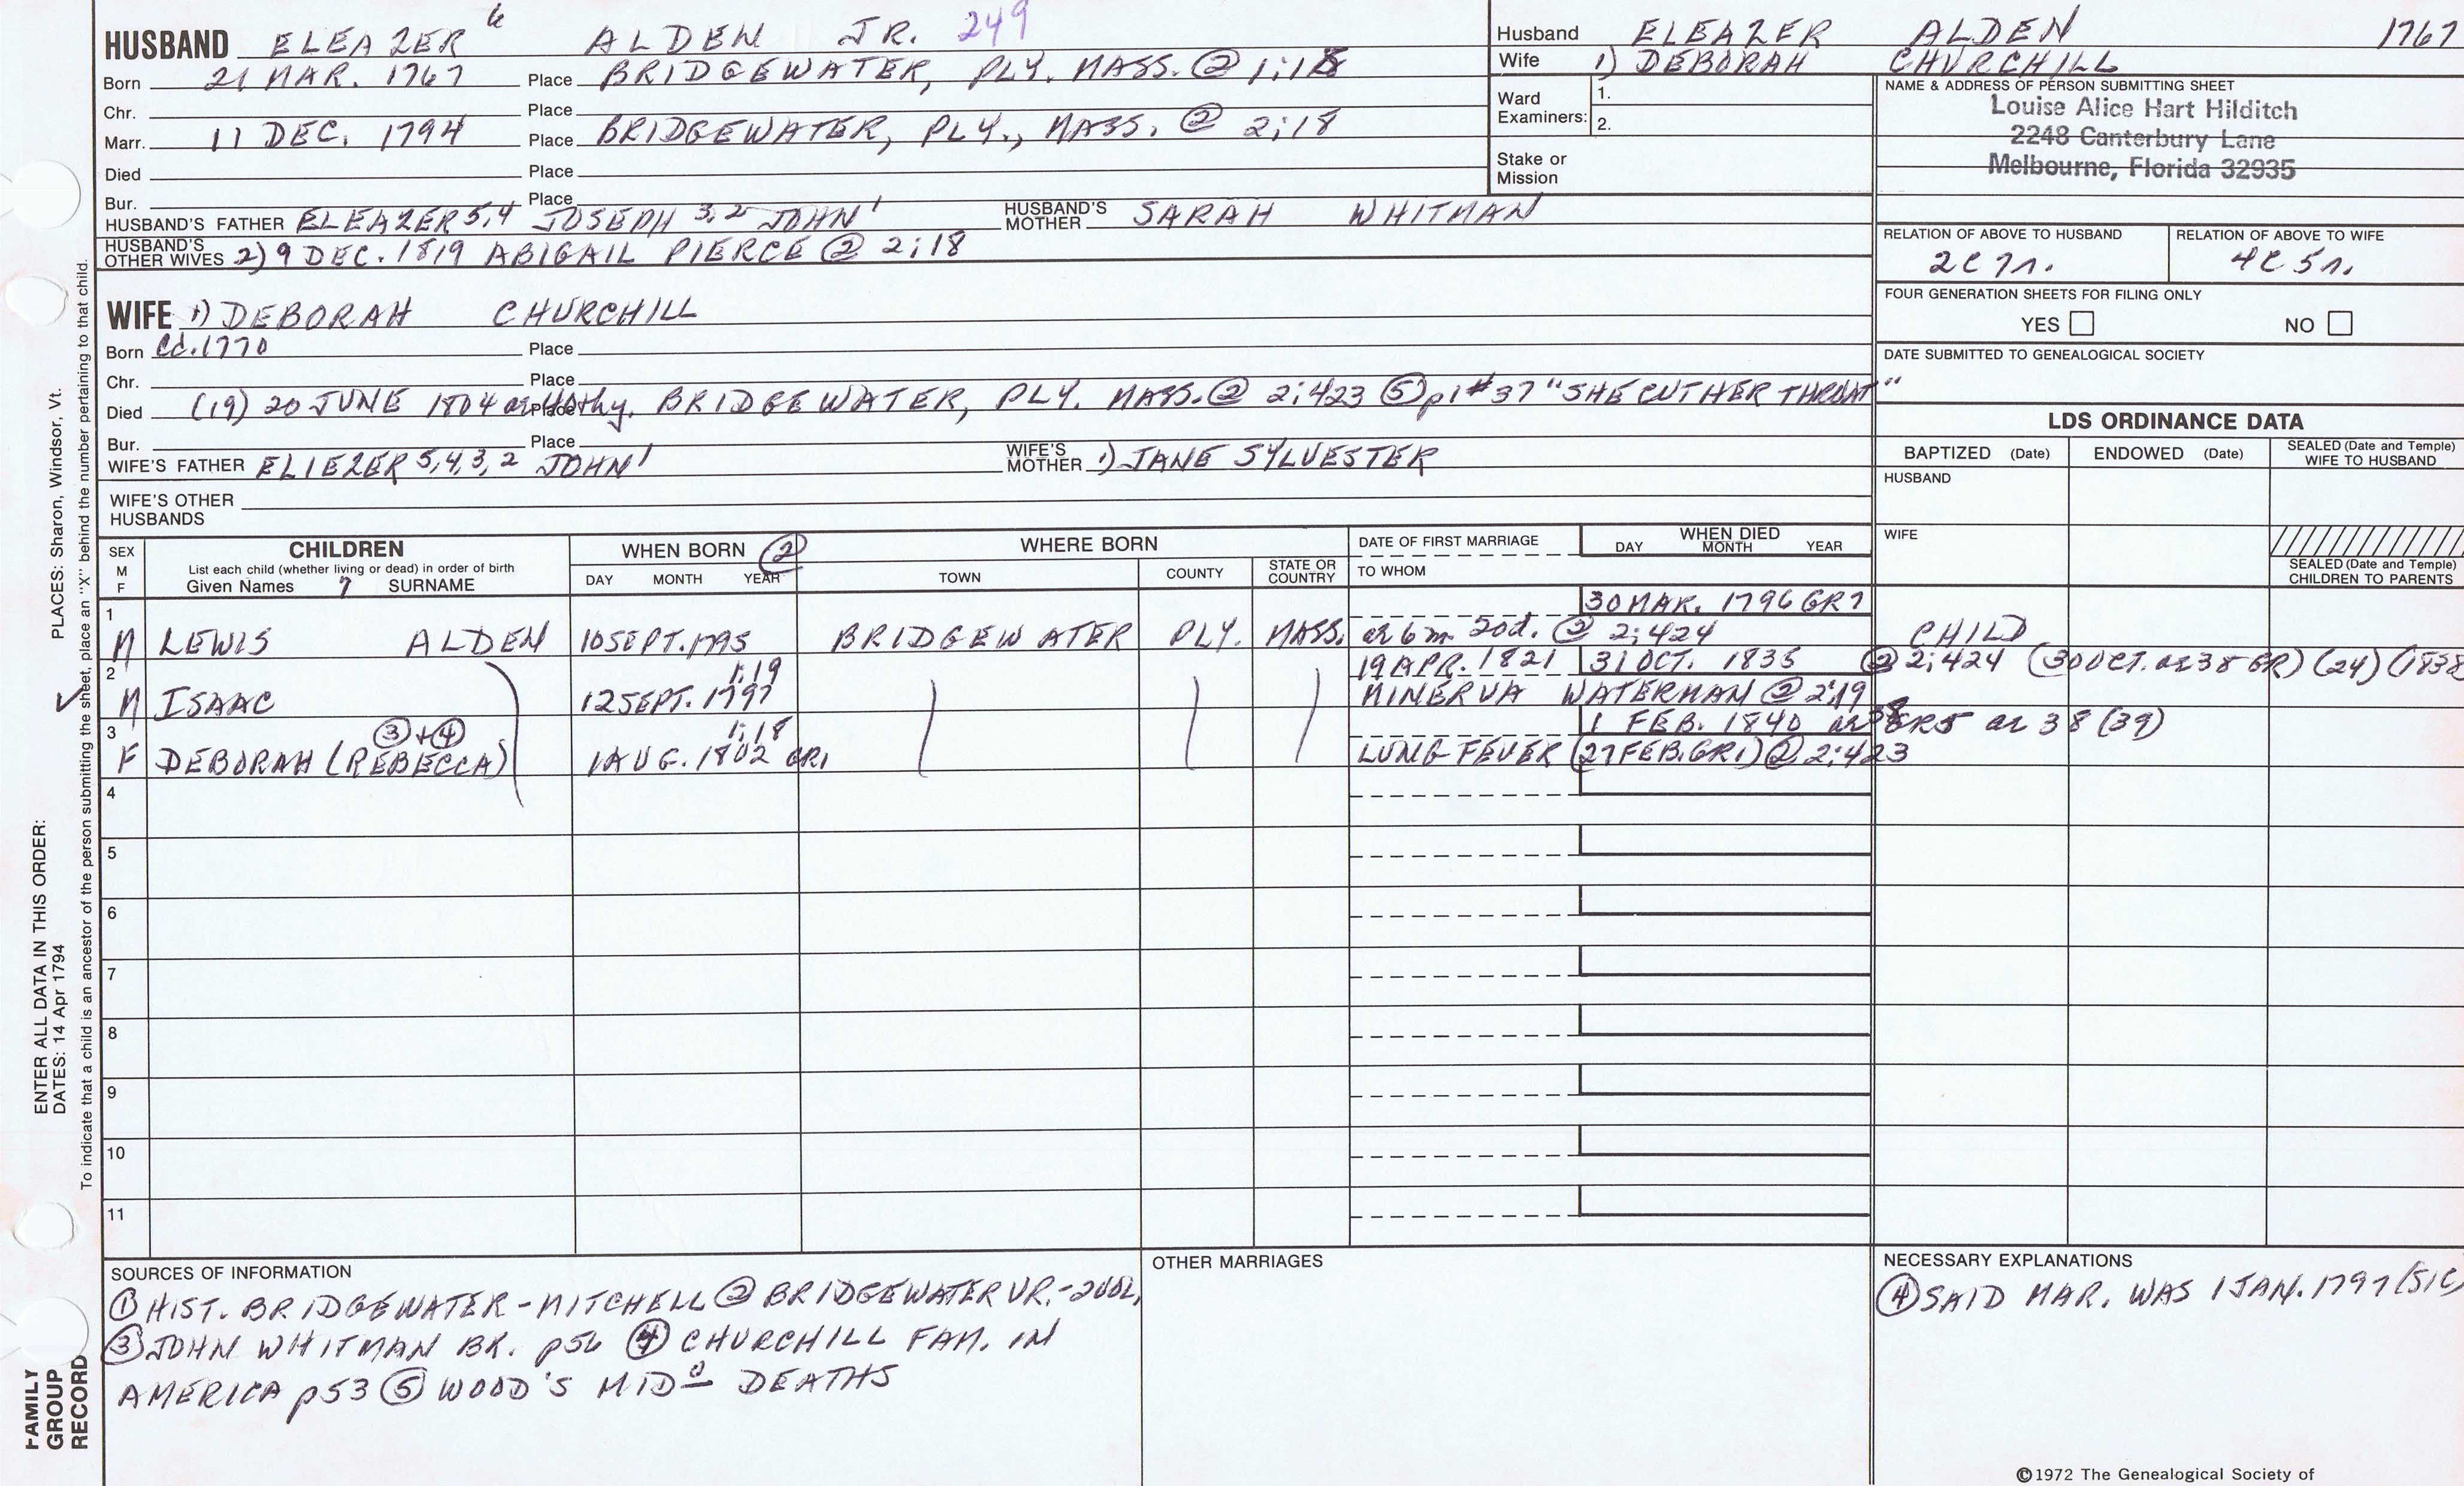 HUSBAND ELEAZER 6 ALDEN JR. 249
Born 21 MAR. 1767 Place BRIDGEWATER, PLY. MASS. ② 1:18
Chr. Place
Marr. 11 DEC. 1794 Place BRIDGEWATER, PLY., MASS. ② 2;18
Died Place
Bur. Place
HUSBAND'S FATHER ELEAZER 5,4 JOSEPH 3,2 JOHN 1 HUSBAND'S MOTHER SARAH WHITMAN
HUSBAND'S OTHER WIVES 2) 9 DEC. 1819 ABIGAIL PIERCE ② 2;18
WIFE 1) DEBORAH CHURCHILL
Born Cd. 1770 Place
Chr. Place
Died (19) 20 JUNE 1804 Place BRIDGEWATER, PLY. MASS. ② 2:423 ⑤ p1 #37 "SHE CUT HER THROAT"
Bur. Place
WIFE'S FATHER ELIEZER 5,4,3,2 JOHN 1 WIFE'S MOTHER 1) JANE SYLVESTER
WIFE'S OTHER HUSBANDS
Husband ELEAZER ALDEN 1767
Wife 1) DEBORAH CHURCHILL
Ward Examiners: 1.
2.
Stake or Mission
NAME & ADDRESS OF PERSON SUBMITTING SHEET
Louise Alice Hart Hilditch
2248 Canterbury Lane
Melbourne, Florida 32935
RELATION OF ABOVE TO HUSBAND RELATION OF ABOVE TO WIFE
2C 7r. 4C 5r.
FOUR GENERATION SHEETS FOR FILING ONLY
YES NO
DATE SUBMITTED TO GENEALOGICAL SOCIETY
LDS ORDINANCE DATA
BAPTIZED (Date) ENDOWED (Date) SEALED (Date and Temple) WIFE TO HUSBAND
HUSBAND
WIFE
SEALED (Date and Temple) CHILDREN TO PARENTS
SEX M F
CHILDREN
List each child (whether living or dead) in order of birth
Given Names 7 SURNAME
WHEN BORN ②
DAY MONTH YEAR
WHERE BORN
TOWN COUNTY STATE OR COUNTRY
DATE OF FIRST MARRIAGE
TO WHOM
WHEN DIED
DAY MONTH YEAR
1 30 MAR. 1796 GR7
M LEWIS ALDEN 10 SEPT. 1795 BRIDGEWATER PLY. MASS. ae 6 m. 20d. ② 2;424 CHILD
2 1:19 19 APR. 1821 31 OCT. 1835 ② 2;424 (30 OCT. ae 38 GR) (24) (1838
M ISAAC 12 SEPT. 1797 MINERVA WATERMAN ② 2:19
3 ③+④ 1:18 1 FEB. 1840 ae 38 GR5 ae 38 (39)
F DEBORAH (REBECCA) 1 AUG. 1802 GR1 LUNG FEVER (27 FEB. GR1) ② 2:423
4
5
6
7
8
9
10
11
SOURCES OF INFORMATION
① HIST. BRIDGEWATER - MITCHELL ② BRIDGEWATER VR. - 2 VOL.
③ JOHN WHITMAN BK. p56 ④ CHURCHILL FAM. IN
AMERICA p53 ⑤ WOOD'S MID DEATHS
OTHER MARRIAGES
NECESSARY EXPLANATIONS
④ SAID MAR. WAS 1 JAN. 1797 (SIC
©1972 The Genealogical Society of
PLACES: Sharon, Windsor, Vt.
To indicate that a child is an ancestor of the person submitting the sheet, place an "X" behind the number pertaining to that child.
ENTER ALL DATA IN THIS ORDER:
DATES: 14 Apr 1794
FAMILY
GROUP
RECORD